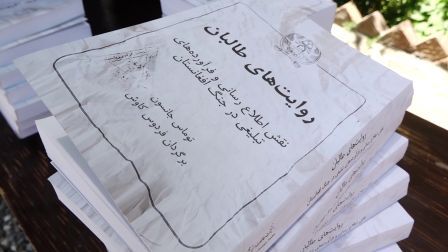 روایت‌های طالبان
نقش اطلاع رسانی و فرآورده‌های
تبلیغی در جنگ افغانستان
توماس جانسون
برگردان فردوس کاوش
روایت‌های طالبان
روایت‌های طالبان